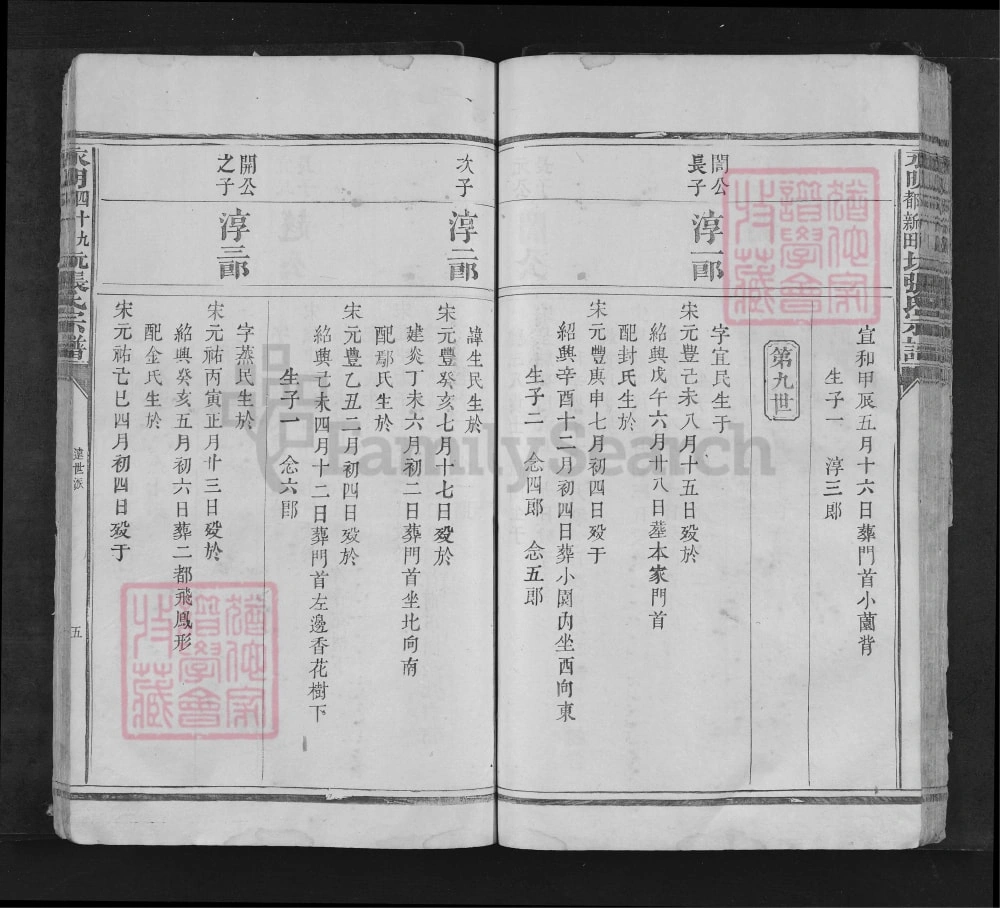 永明都新田坑張氏宗譜
宣和甲辰五月十六日葬門首小薗背
生子一 淳三郎
第九世
闇公
長子
淳一郎
字宜民生于
宋元豊己未八月十五日殁於
紹興戊午六月廿八日葬本家門首
配封氏生於
宋元豐庚申七月初四日殁于
紹興辛酉十二月初四日葬小園內坐西向東
生子二 念四郎 念五郎
次子
淳二郎
諱生民生於
宋元豐癸亥七月十七日殁於
建炎丁未六月初二日葬門首坐北向南
配鄢氏生於
宋元豐乙丑二月初四日殁於
紹興己未四月十二日葬門首左邊香花樹下
生子一 念六郎
開公
之子
淳三郎
字蒸民生於
宋元祐丙寅正月廿三日殁於
紹興癸亥五月初六日葬二都飛鳳形
配金氏生於
宋元祐己巳四月初四日殁于
永明四十九坑張氏宗譜
遠世派
五
FamilySearch